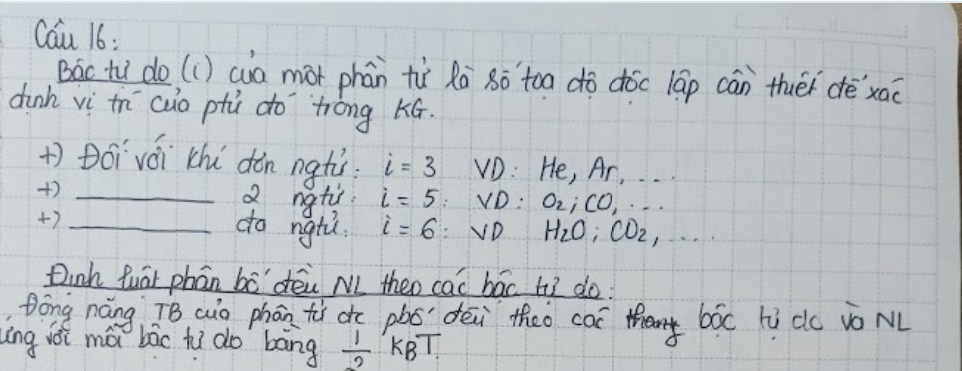 Câu 16:
Bậc tự do (i) của một phân tử là số tọa độ độc lập cần thiết để xác
định vị trí của ptử đó trong KG.
+) Đối với khí đơn ngtử: i = 3 VD: He, Ar, ...
+) ________ 2 ngtử: i = 5: VD: O2; CO, ...
+) ________ đa ngtử: i = 6: VD H2O; CO2, ....
Định luật phân bố đều NL theo các bậc tự do:
Động năng TB của phân tử đc pbố đều theo các bậc tự do và NL
ứng với mỗi bậc tự do bằng 1/2 KBT.